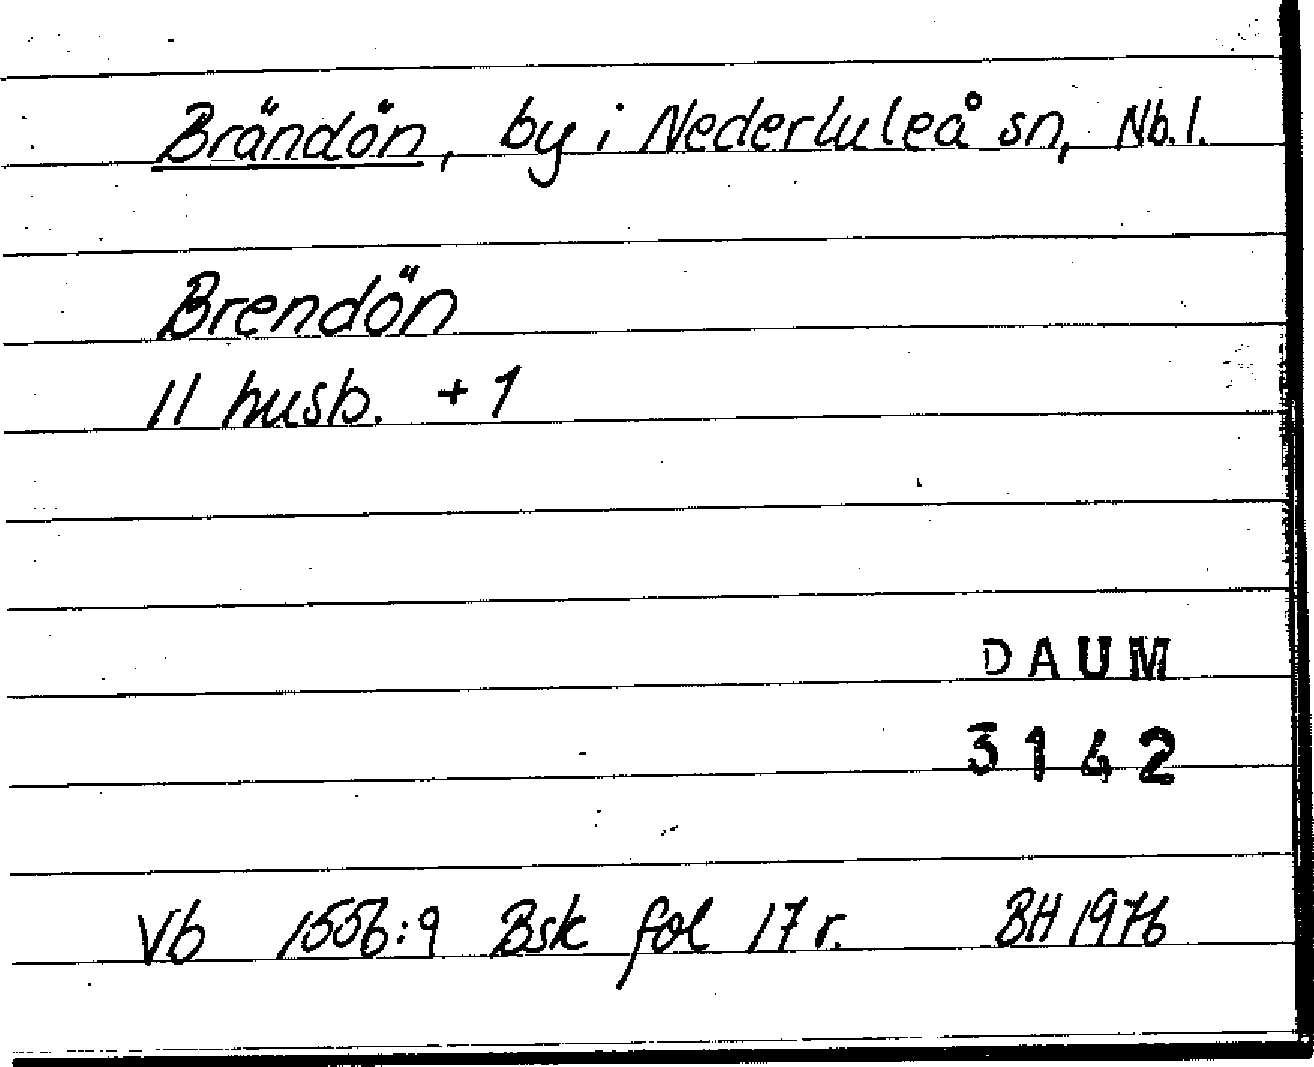 Brändön, by i Nederluleå sn, Nb.l.
Brendön
11 husb. + 1
DAUM
3142
Vb 1556:9 Bsk fol 17 r. BH 1976